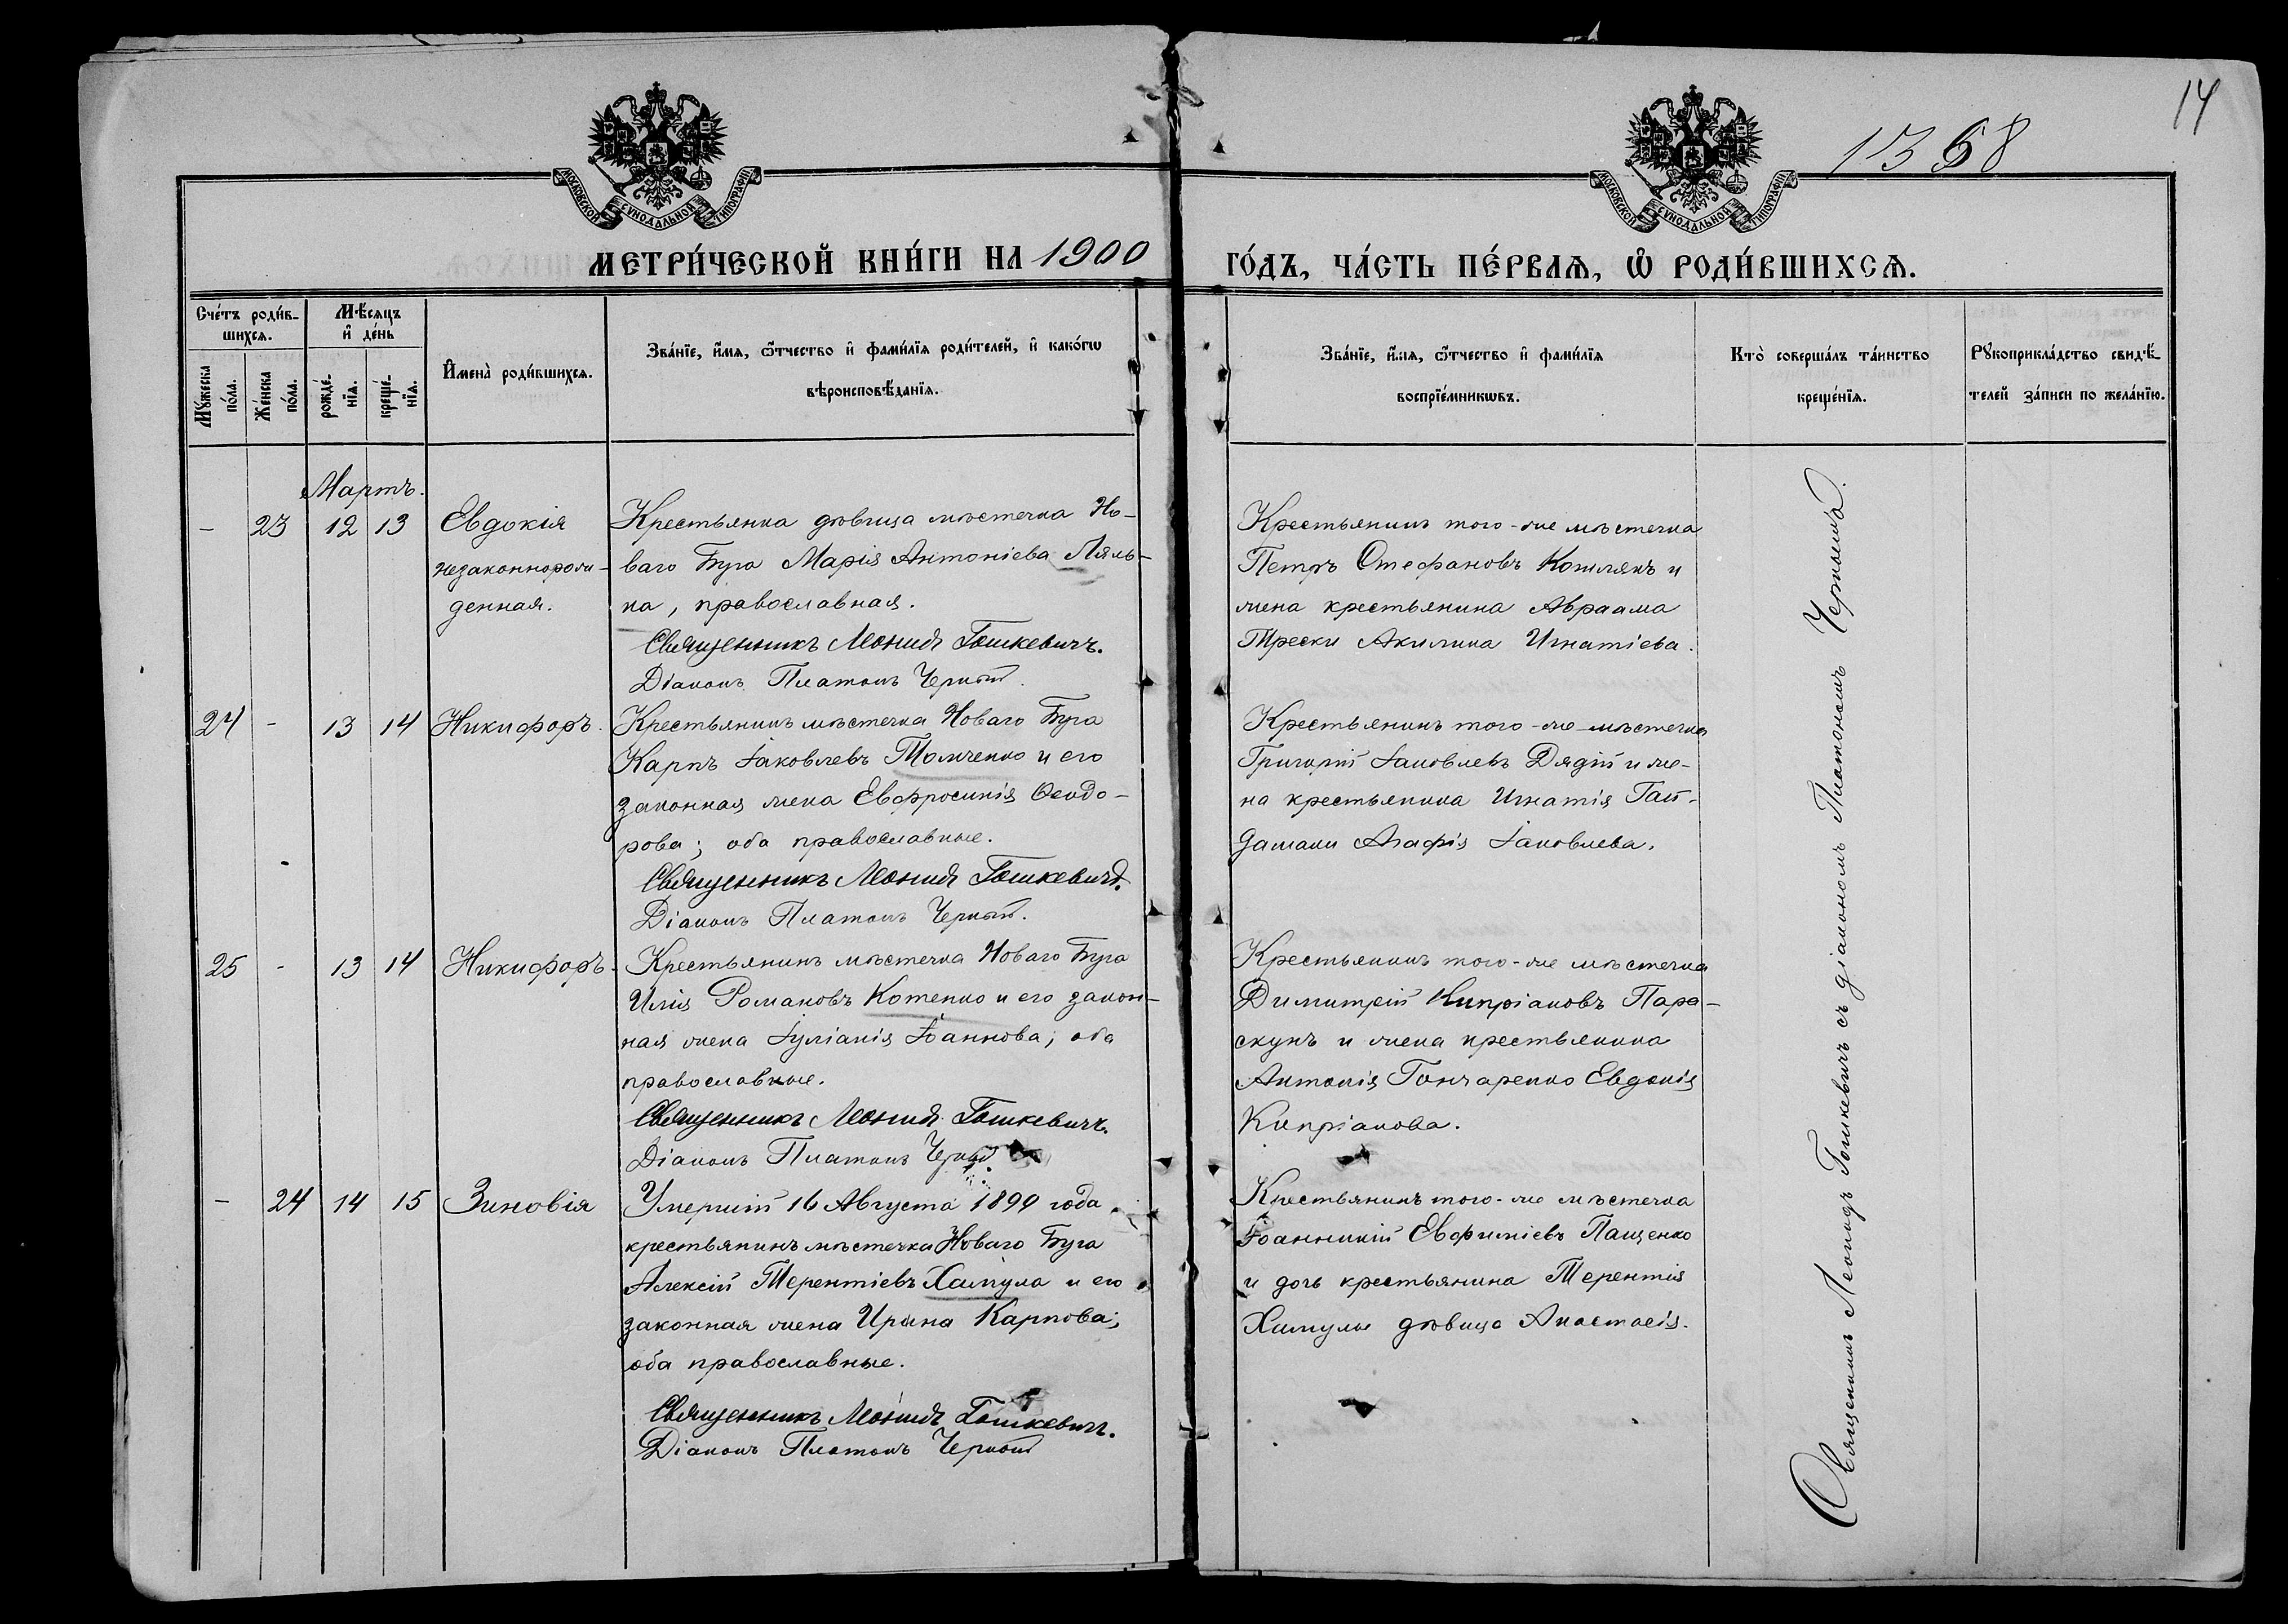 14
1368
МОСКОВСКОЙ СѴНОДАЛЬНОЙ ТИПОГРАФІИ
МОСКОВСКОЙ СѴНОДАЛЬНОЙ ТИПОГРАФІИ
МЕТРИ́ЧЕСКОЙ КНИ́ГИ НА 1900
ГО́ДЪ, ЧА́СТЬ ПЕ́РВАѦ, Ѡ҆ РОДИ́ВШИХСѦ.
Сче́тъ роди́в-
шихсѧ.
Мѣ́сѧцъ
и҆ де́нь
Мꙋ́жеска
по́ла.
Же́нска
по́ла.
рожде́-
нїѧ.
креще́-
нїѧ.
И҆мена̀ роди́вшихсѧ.
Зва́нїе, и҆́мѧ, ѻ҆́тчество и҆ фами́лїѧ роди́телей, и҆ како́гѡ
вѣроисповѣ́данїѧ.
Зва́нїе, и҆́мѧ, ѻ҆́тчество и҆ фами́лїѧ
воспрїе́мникѡвъ.
Кто̀ соверша́лъ та́инство
креще́нїѧ.
Рꙋкоприкла́дство свидѣ́-
телей за́писи по жела́нїю.
Мартъ.
- 23 12 13 Евдокія
незаконнорож-
денная.
Крестьянка дѣвица мѣстечка Но-
ваго Буга Марія Антоніева Ляль-
ка, православная.
Священникъ Леонидъ Гошкевичъ.
Діаконъ Платонъ Черный.
Крестьянинъ того-же мѣстечка
Петръ Стефановъ Кошлякъ и
жена крестьянина Авраама
Трески Акилина Игнатіева.
24 - 13 14 Никифоръ.
Крестьянинъ мѣстечка Новаго Буга
Карпъ Іаковлевъ Томченко и его
законная жена Евфросинія Ѳеодо-
рова; оба православные.
Священникъ Леонидъ Гошкевичъ.
Діаконъ Платонъ Черный.
Крестьянинъ того-же мѣстечка
Григорій Іаковлевъ Дядій и же-
на крестьянина Игнатія Гай-
дамаки Агафія Іаковлева.
25 - 13 14 Никифоръ.
Крестьянинъ мѣстечка Новаго Буга
Илія Романовъ Котенко и его закон-
ная жена Іуліанія Іоаннова; оба
православные.
Священникъ Леонидъ Гошкевичъ.
Діаконъ Платонъ Черный
Крестьянинъ того-же мѣстечка
Димитрій Кипріановъ Пара-
скунъ и жена крестьянина
Антонія Гончаренко Евдокія
Кипріанова.
- 24 14 15 Зиновія
Умершій 16 Августа 1899 года
крестьянинъ мѣстечка Новаго Буга
Алексій Терентіевъ Химула и его
законная жена Ирина Карпова;
оба православные.
Священникъ Леонидъ Гошкевичъ.
Діаконъ Платонъ Черный
Крестьянинъ того-же мѣстечка
Іоанникій Евфиміевъ Пащенко
и дочь крестьянина Терентія
Химулы дѣвица Анастасія.
Священникъ Леонидъ Гошкевичъ съ діакономъ Платономъ Чернымъ.